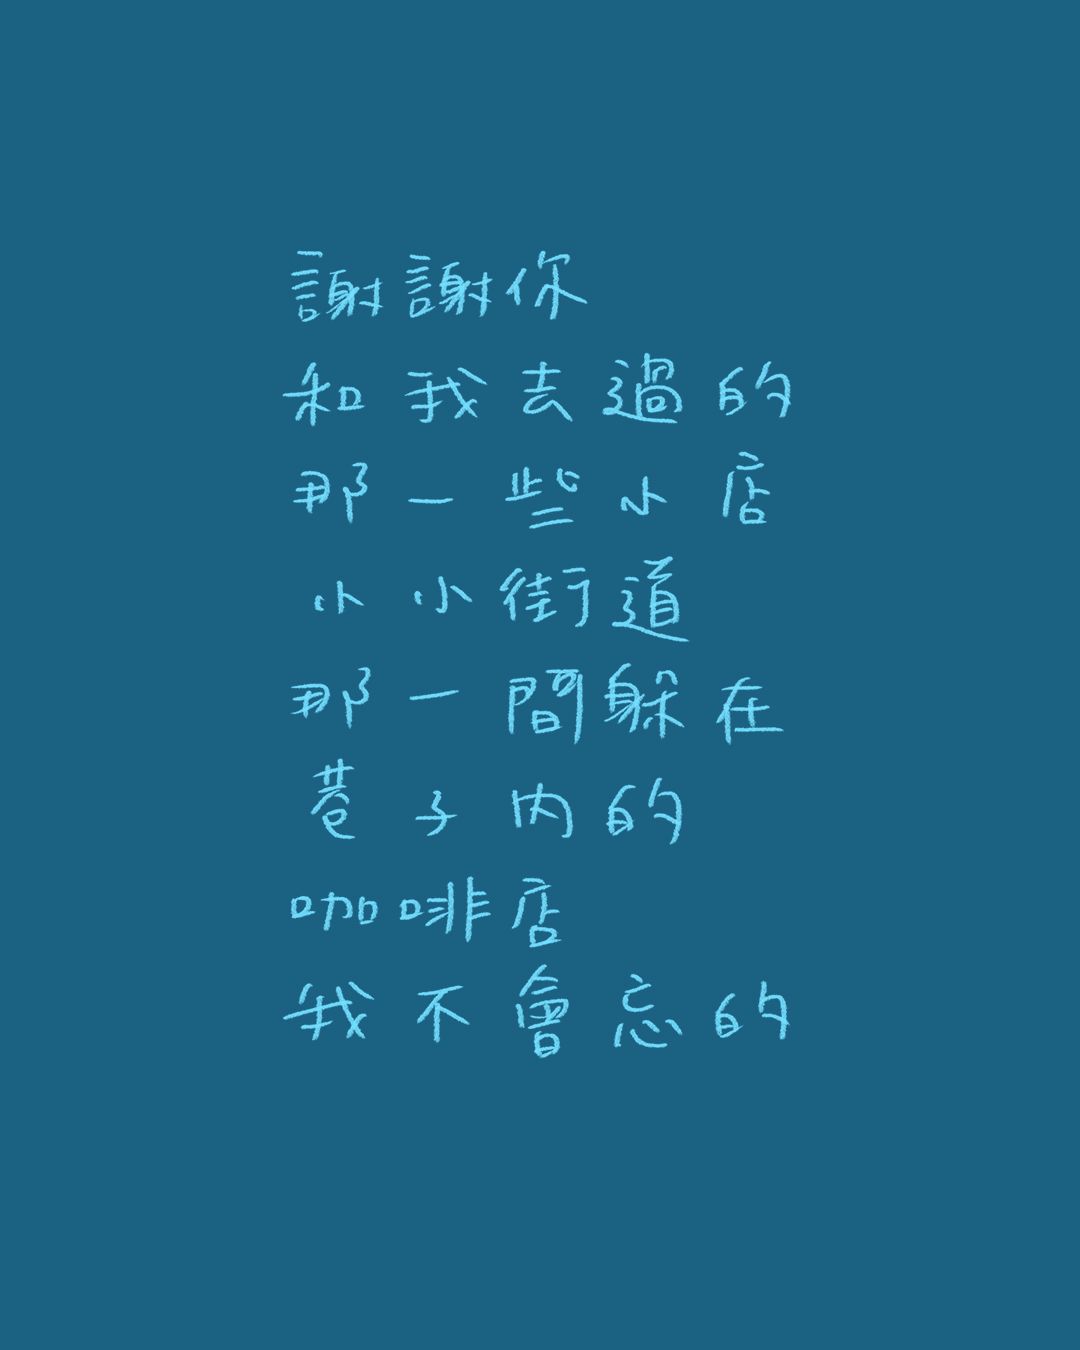 謝謝你
和我去過的
那一些小店
小小街道
那一間躲在
巷子內的
咖啡店
我不會忘的